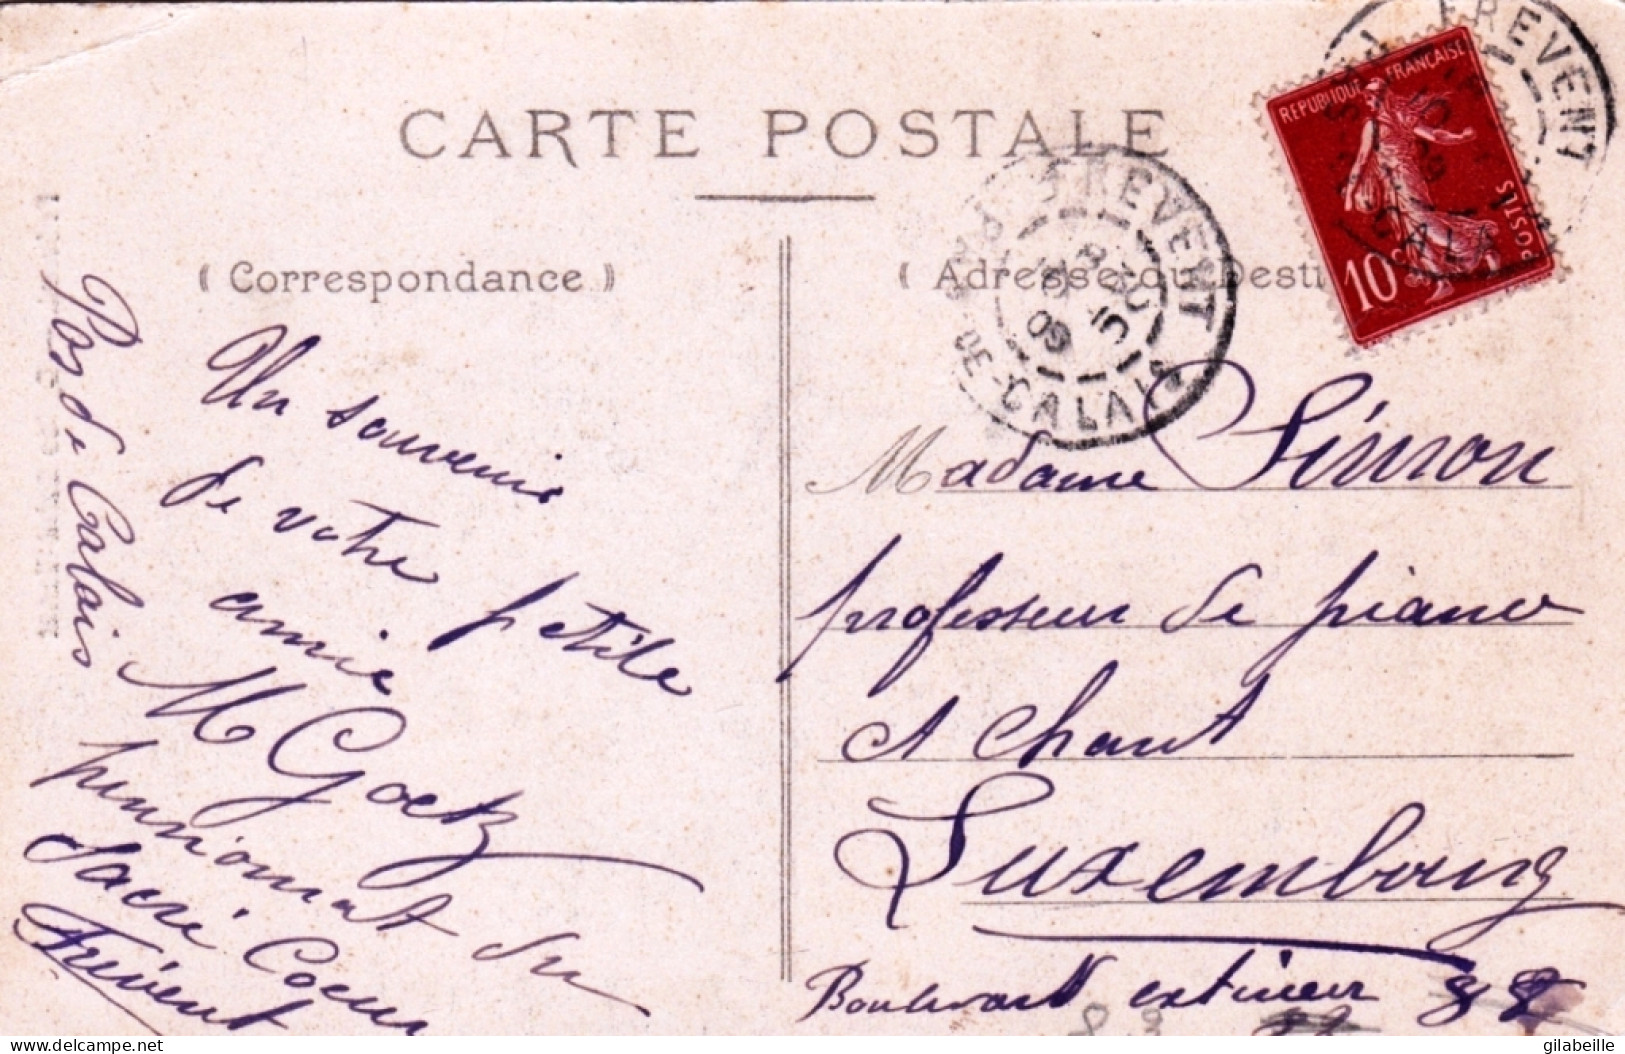 CARTE POSTALE
( Correspondance )
( Adresse du Desti
Un souvenir
de votre petite
amie
M Goetz
pensionnat du
Sacré Coeur
Frévent
Pas de Calais
Madame Simon
professeur de piano
et chant
Luxembourg
Boulevard extérieur 88
REPUBLIQUE FRANÇAISE
POSTES
10 c
FREVENT
CALAIS
FREVENT
DE-CALAIS
09
delcampe.net
gilabeille